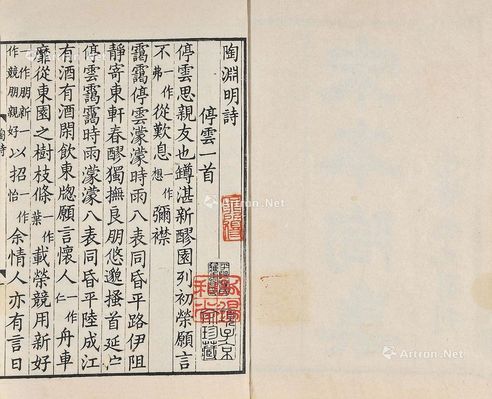 陶淵明詩
停雲一首
停雲思親友也罇湛新醪園列初榮願言
不一作弗從歎息一作想彌襟
靄靄停雲濛濛時雨八表同昏平路伊阻
靜寄東軒春醪獨撫良朋悠邈搔首延佇
停雲靄靄時雨濛濛八表同昏平陸成江
有酒有酒閑飲東牕願言懷人一作仁舟車
靡從東園之樹枝條一作葉載榮競用新好
一作朋新一作競朋親好以招一作怡余情人亦有言日
陶詩
珍藏
Artron.Net
Artron.Net